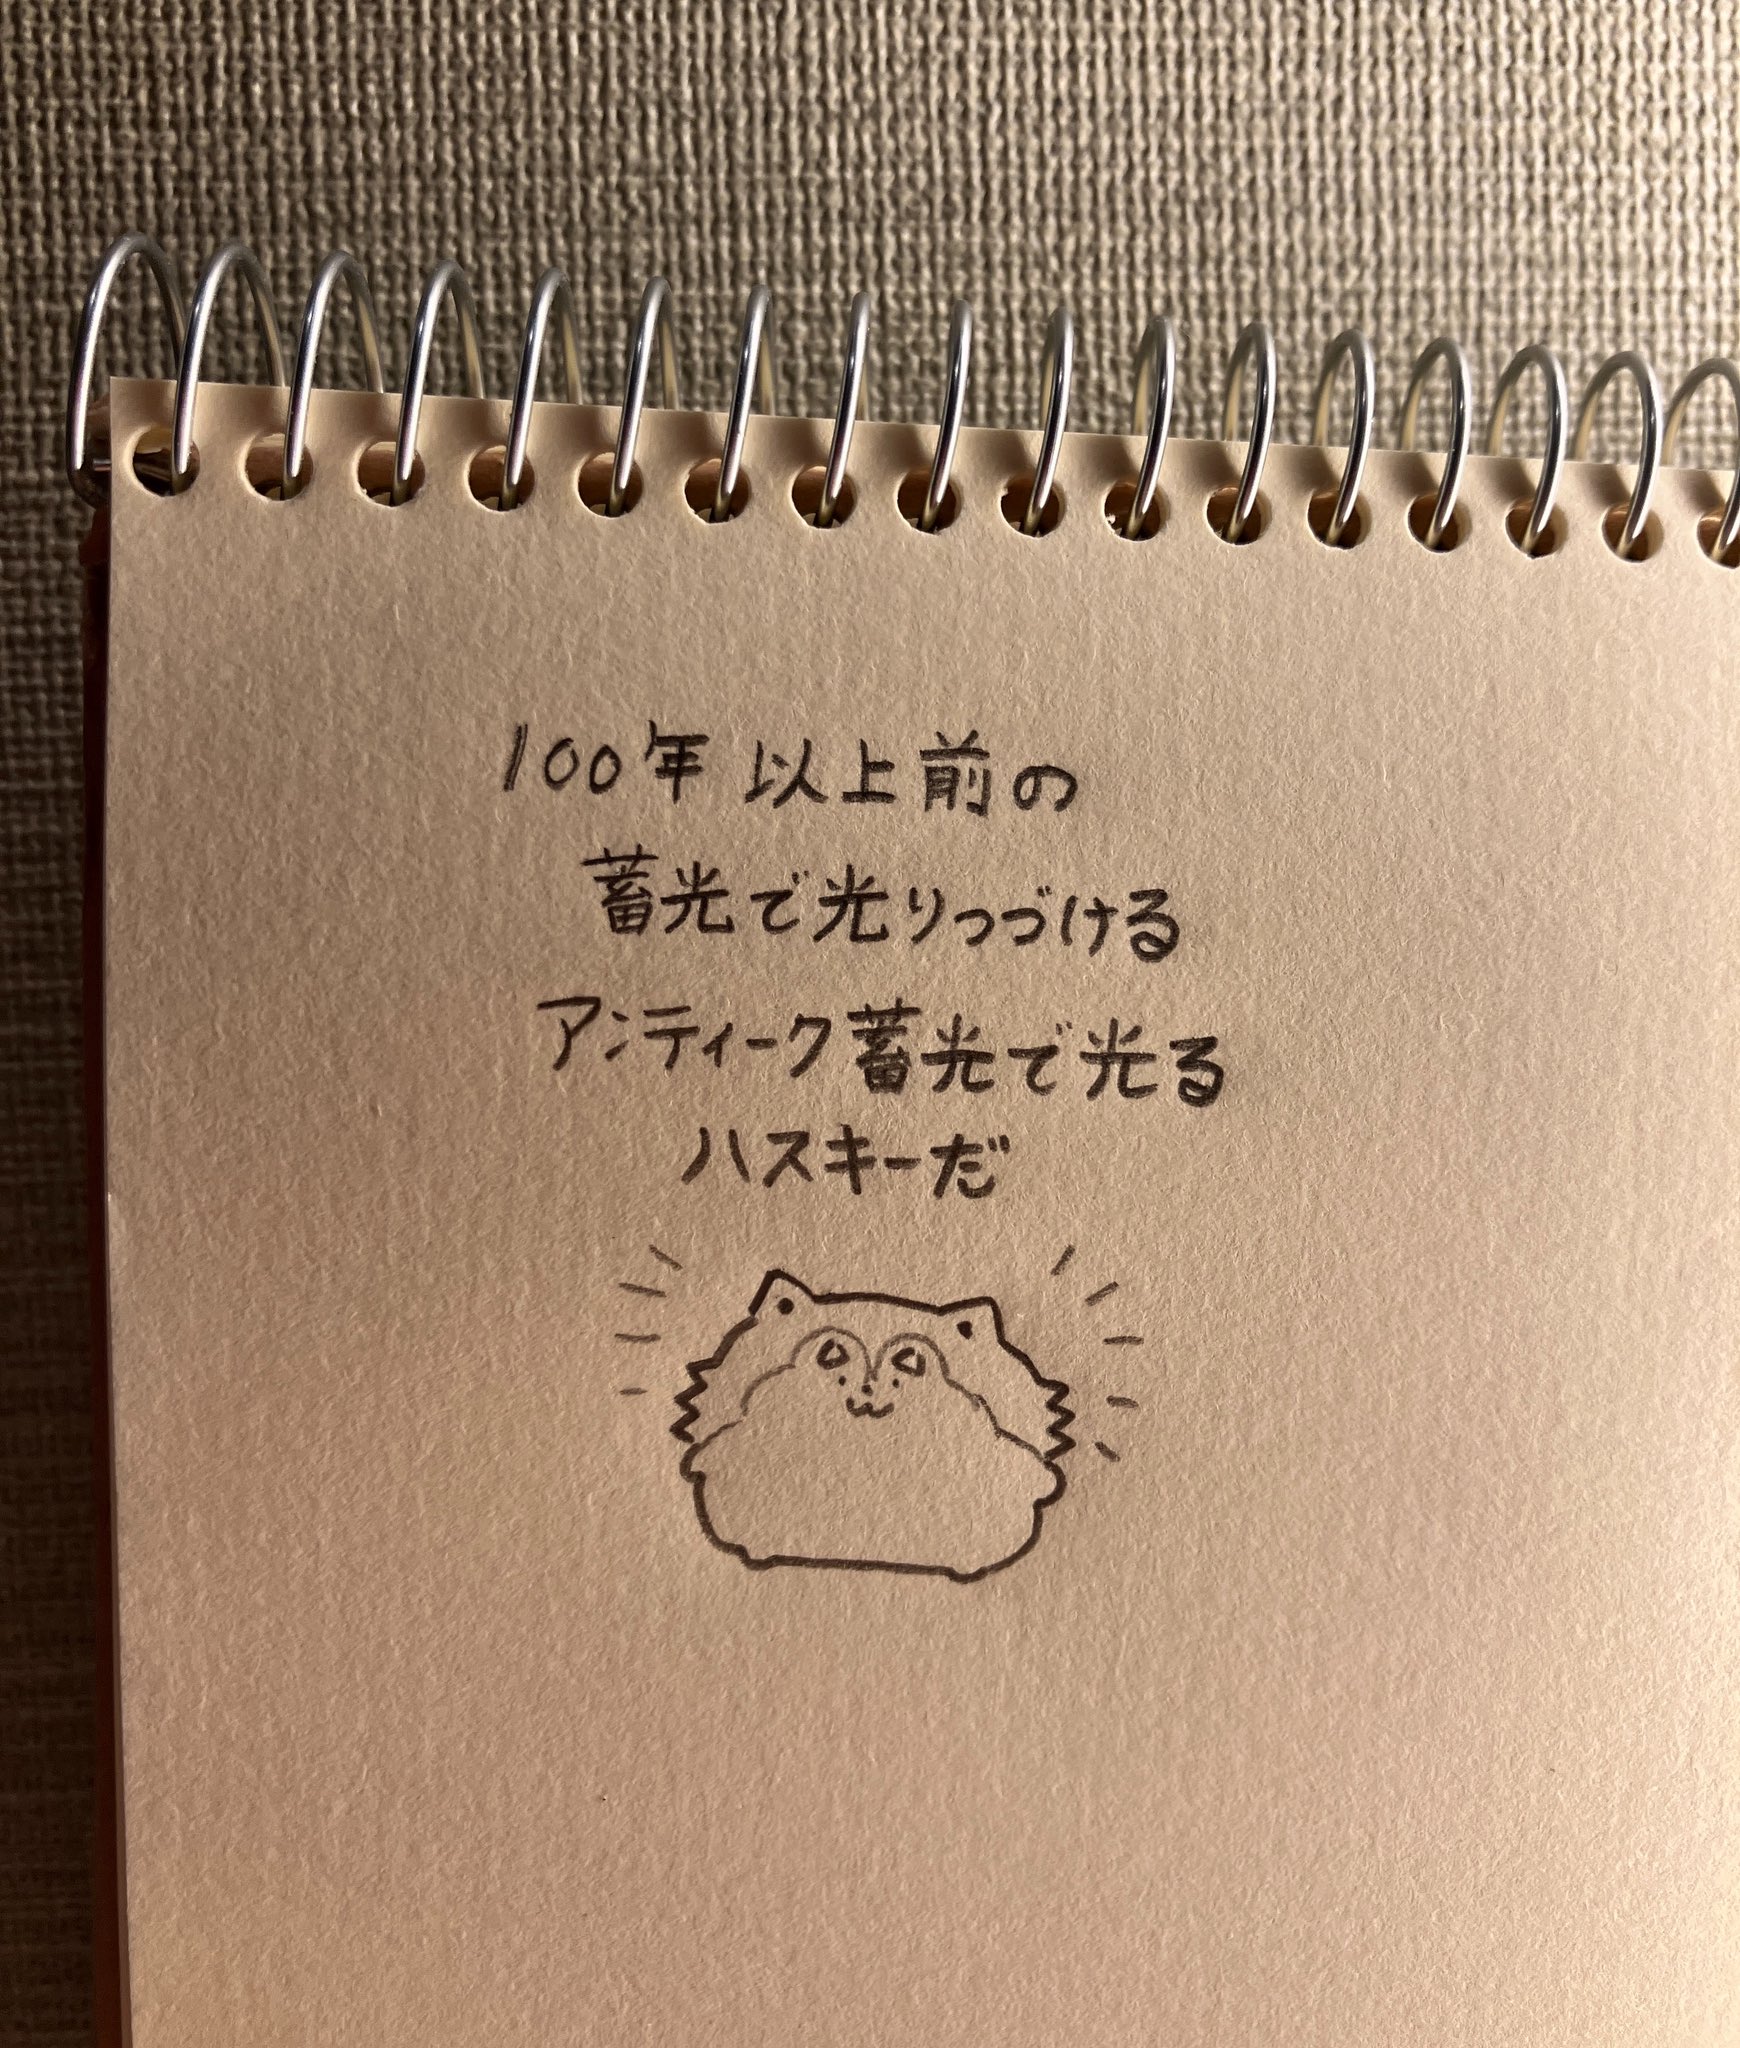 100年以上前の
蓄光で光りつづける
アンティーク蓄光で光る
ハスキーだ